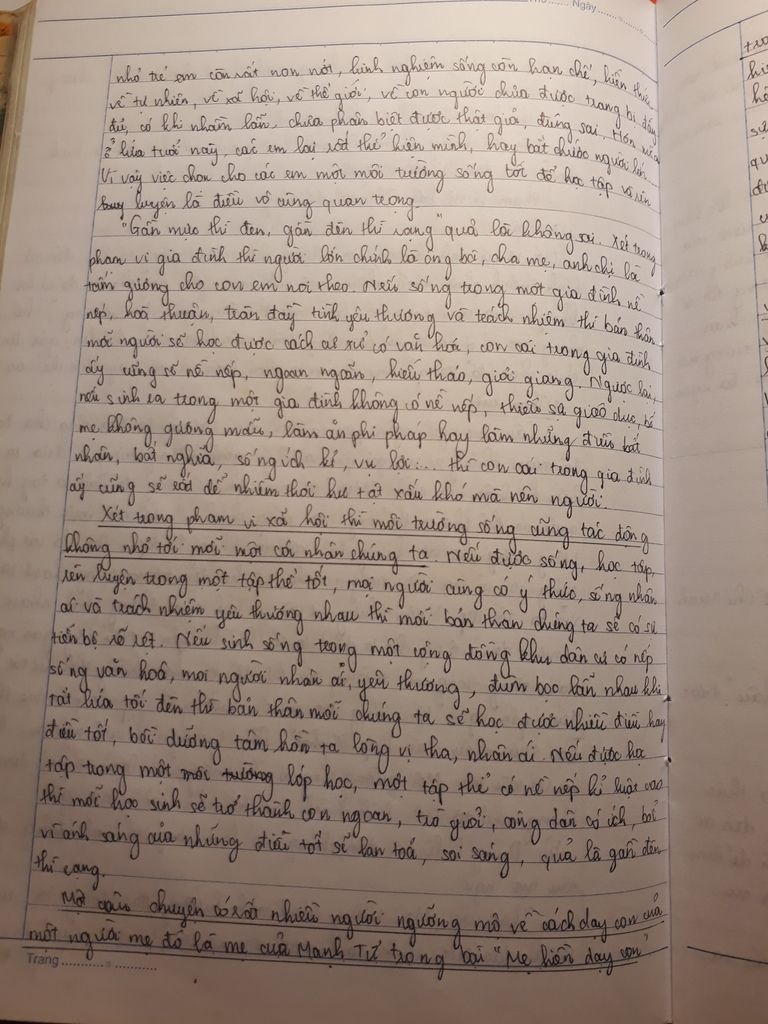 Ngày
nhỏ trẻ em còn rất non nớt, kinh nghiệm sống còn hạn chế, kiến thức
về tự nhiên, về xã hội, về thế giới, về con người chưa được trang bị đầy
đủ, có khi nhầm lẫn, chưa phân biệt được thật giả, đúng sai. Hơn nữa
ở lứa tuổi này, các em lại rất thể hiện mình, hay bắt chước người lớn...
Vì vậy việc chọn cho các em một môi trường sống tốt để học tập và rèn
luyện là điều vô cùng quan trọng.
"Gần mực thì đen, gần đèn thì rạng" quả là không sai. Xét trong
phạm vi gia đình thì người lớn chính là ông bà, cha mẹ, anh chị là
tấm gương cho con em noi theo. Nếu sống trong một gia đình nề
nếp, hoà thuận, tràn đầy tình yêu thương và trách nhiệm thì bản thân
mỗi người sẽ học được cách cư xử có văn hoá, con cái trong gia đình
ấy cũng sẽ nề nếp, ngoan ngoãn, hiếu thảo, giỏi giang. Ngược lại,
nếu sinh ra trong một gia đình không có nề nếp, thiếu sự giáo dục, bố
mẹ không gương mẫu, làm ăn phi pháp hay làm những điều bất
nhân, bất nghĩa, sống ích kỉ, vụ lợi... thì con cái trong gia đình
ấy cũng sẽ rất dễ nhiễm thói hư tật xấu khó mà nên người.
Xét trong phạm vi xã hội thì môi trường sống cũng tác động
không nhỏ tới mỗi một cá nhân chúng ta. Nếu được sống, học tập,
rèn luyện trong một tập thể tốt, mọi người cùng có ý thức, sống nhân
ái và trách nhiệm yêu thương nhau thì mỗi bản thân chúng ta sẽ có sự
tiến bộ rõ rệt. Nếu sinh sống trong một cộng đồng khu dân cư có nếp
sống văn hoá, mọi người nhân ái, yêu thương, đùm bọc lẫn nhau khi
tắt lửa tối đèn thì bản thân mỗi chúng ta sẽ học được nhiều điều hay
điều tốt, bồi dưỡng tâm hồn ta lòng vị tha, nhân ái. Nếu được học
tập trong một môi trường lớp học, một tập thể có nề nếp kỉ luật cao
thì mỗi học sinh sẽ trở thành con ngoan, trò giỏi, công dân có ích, bởi
vì ánh sáng của những điều tốt sẽ lan toả, soi sáng, quả là gần đèn
thì rạng.
Một câu chuyện có rất nhiều người ngưỡng mộ về cách dạy con của
một người mẹ đó là mẹ của Mạnh Tử trong bài "Mẹ hiền dạy con"
Trang